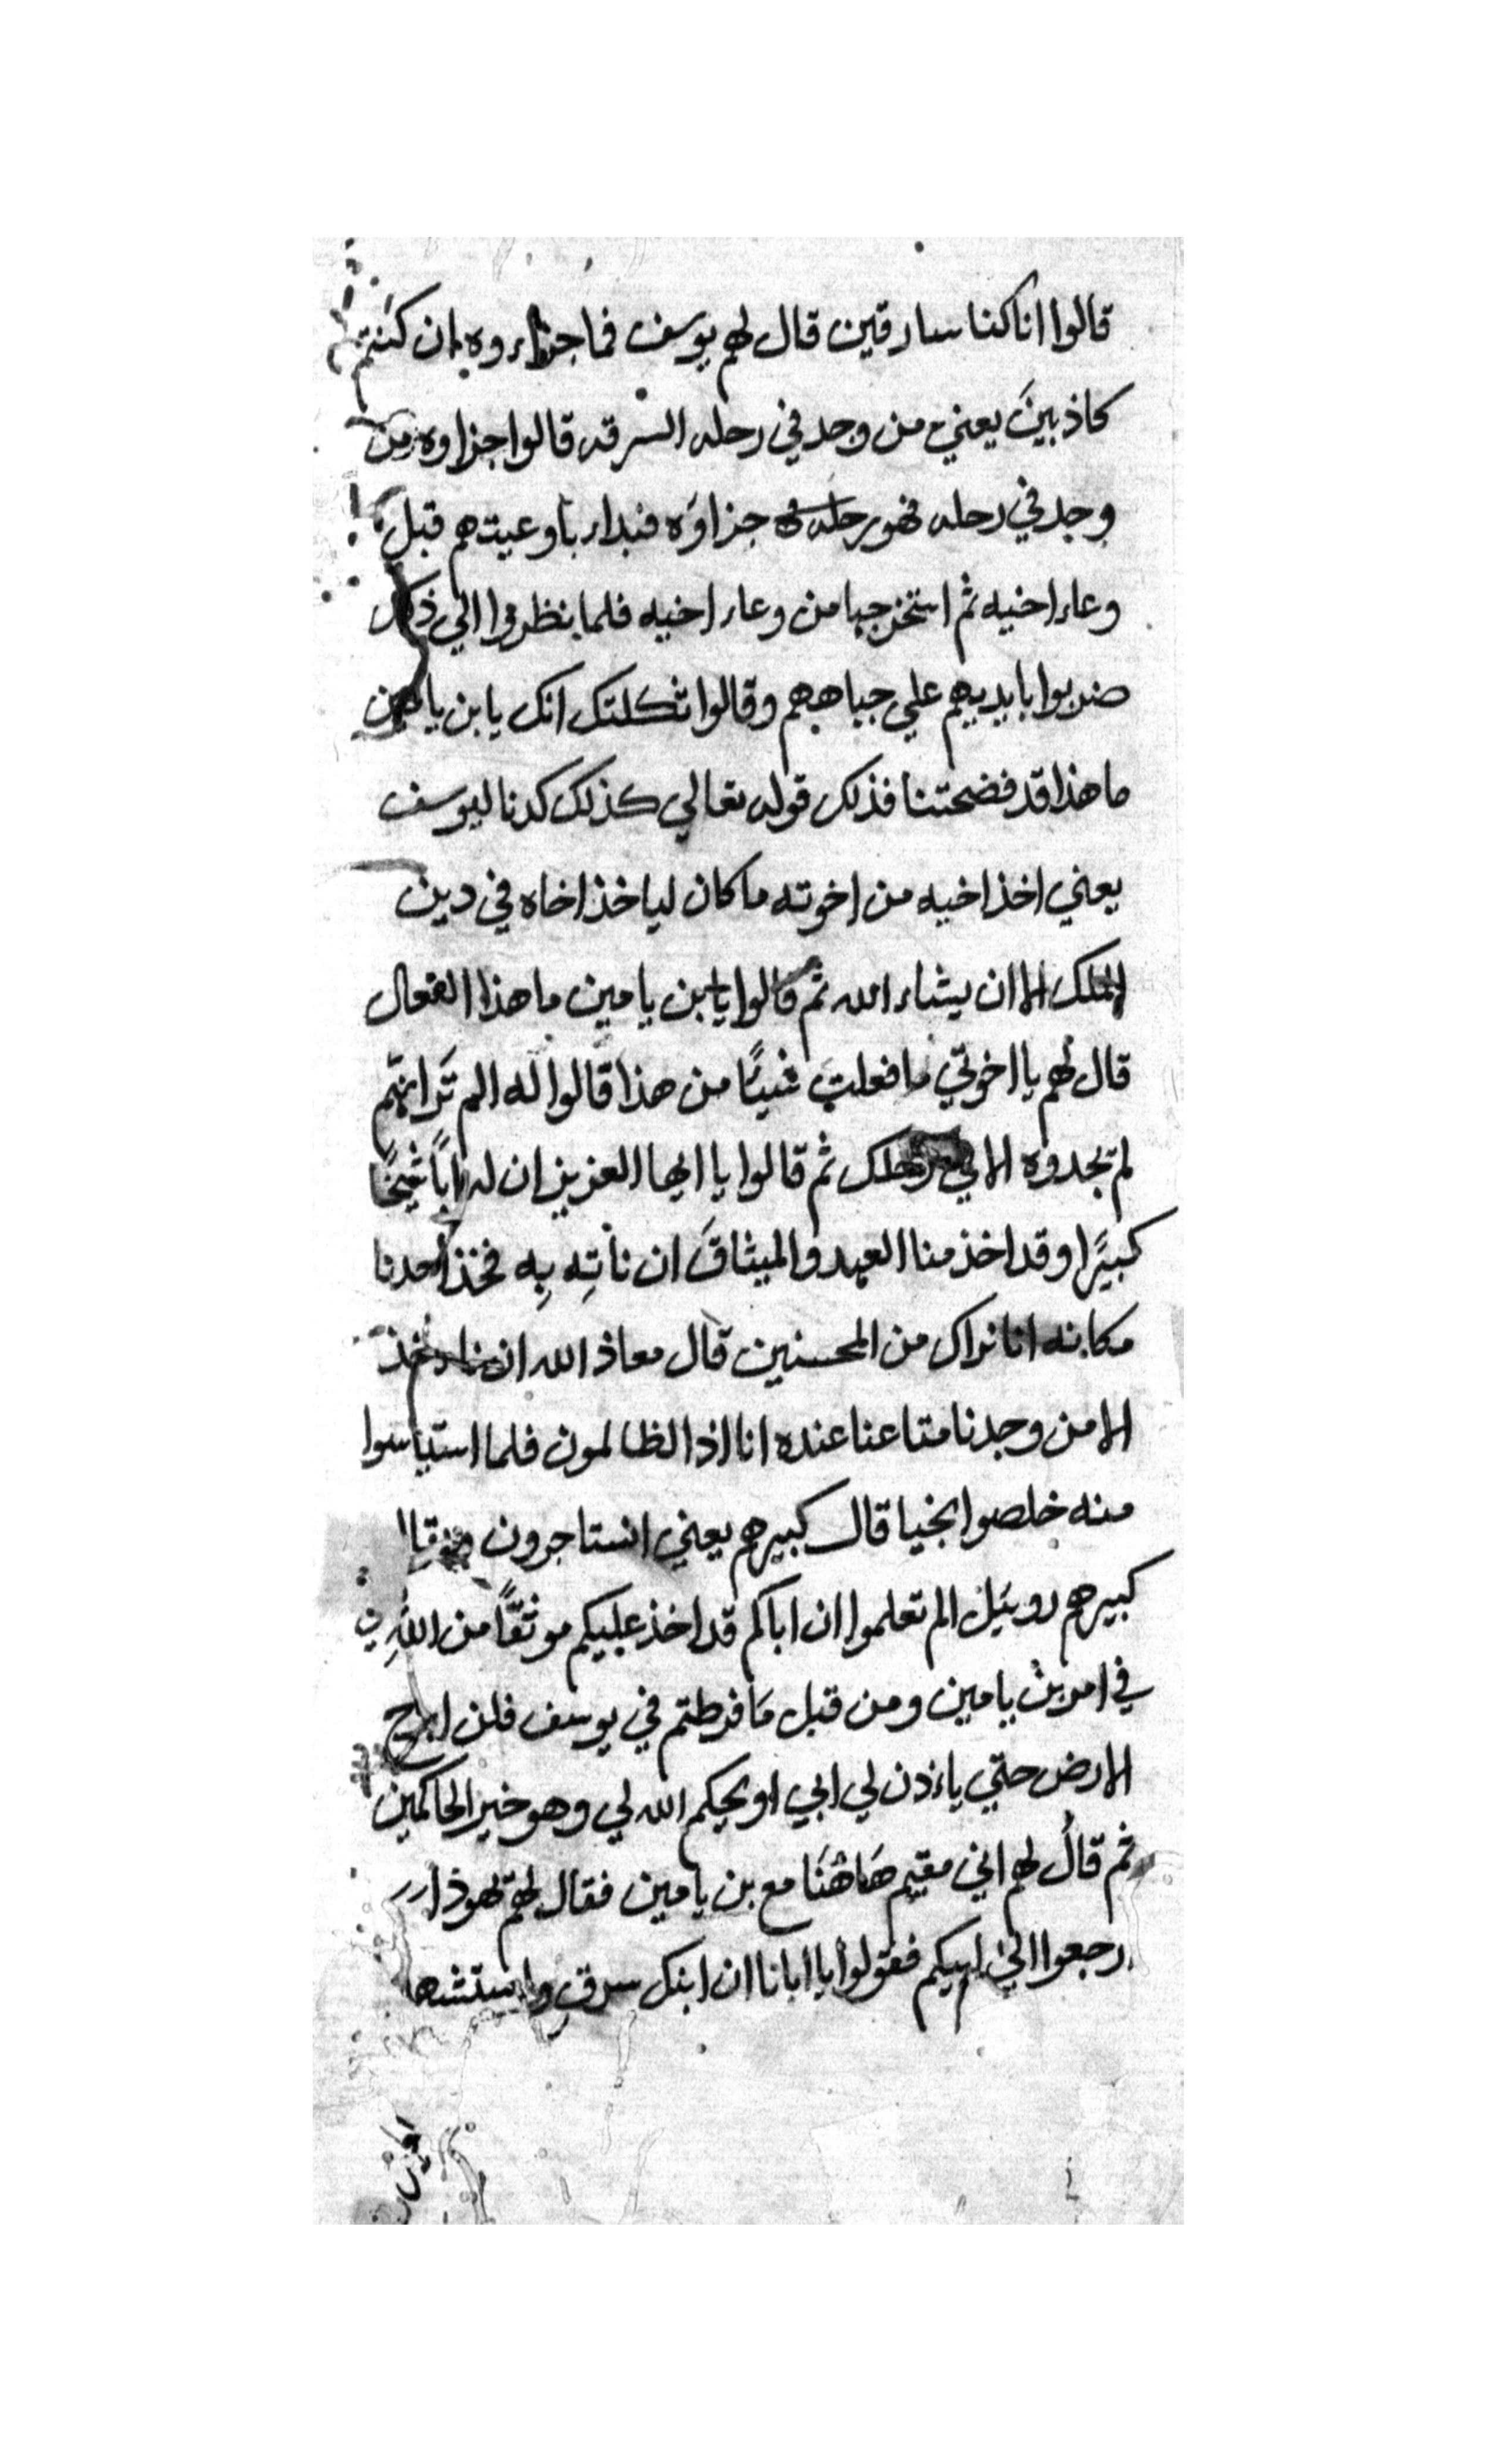 قالوا انا كنا سارقين قال لهم يوسف فما جزاءوه ان كنتم
كاذبينَ يعني من وجد في رحله السرقه قالوا جزاوه من
وجد في رحله فهو جزاوَه فبداء باوعيتهم قبل
وعاء اخيه ثم استخرجها من وعاء اخيه فلما نظروا الي ذلك
ضربوا بايديهم علي جباههم وقالوا ثكلتك امك يا بن يامين
ما هذا قد فضحتنا فذلك قوله تعالي كذلك كدنا ليوسف
يعني اخذ اخيه من اخوته ما كان لياخذ اخاه في دين
الملك الا ان يشاء الله ثم قالوا يا بن يامين ما هذا الفعال
قال لهم يا اخوتي ما فعلت شيًا من هذا قالوا له الم تَرَ انهم
لم يجدوه الا في رحلك ثم قالوا يا ايها العزيز ان له اباً شيخًا
كبيرًا وقد اخذ منا العهد والميثاقَ ان ناتِه بِه فخذ احدنا
مكانه انا نراك من المحسنين قال معاذ الله ان ناخذ
الا من وجدنا متاعنا عنده انا اذا لظالمون فلما استياسوا
منه خلصوا نجيا قال كبيرهم يعني انستاجرون
كبيرهم روبيَل الم تعلموا ان اباكم قد اخذ عليكم موثقًا من اللهِ
في امر بن يامين ومن قبل مَا فرطتم في يوسف فلن ابرح
الارض حتي ياءذن لي ابي او يحكم الله لي وهو خير الحاكمين
ثم قال لهم اني مقيم هَاهُنَا مع بن يامين فقال لهم يهوذا
رجعوا الي ابيكم فقولوا يا ابانا ان ابنك سرق